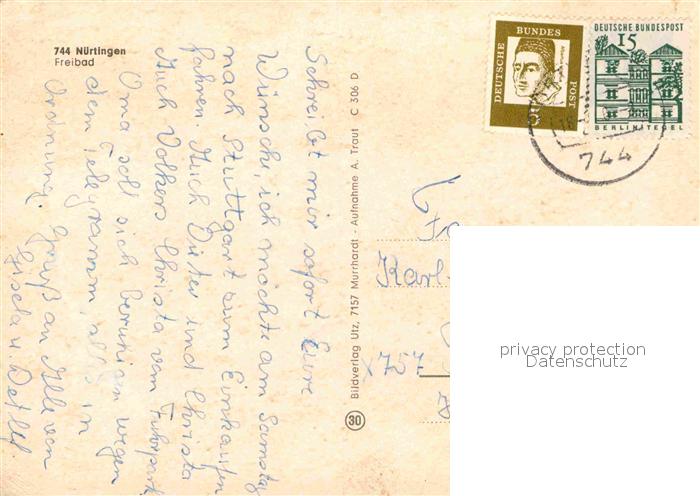 744 Nürtingen
Freibad
Schreibt mir sofort Eure
Wünsche, ich möchte am Samstag
nach Stuttgart zum Einkaufen
fahren. Auch Dieter und Christa
Auch Volkers Christa vom Fuhrpark
Oma soll sich beruhigen wegen
dem Telegramm, alles in
Ordnung. Gruß an Alle von
Gisela u. Detlef
Bildverlag Utz, 7157 Murrhardt - Aufnahme A. Traut C 306 D
30
DEUTSCHE BUNDESPOST
DEUTSCHE BUNDESPOST
15
BERLIN TEGEL
744
Karl-
757
privacy protection
Datenschutz